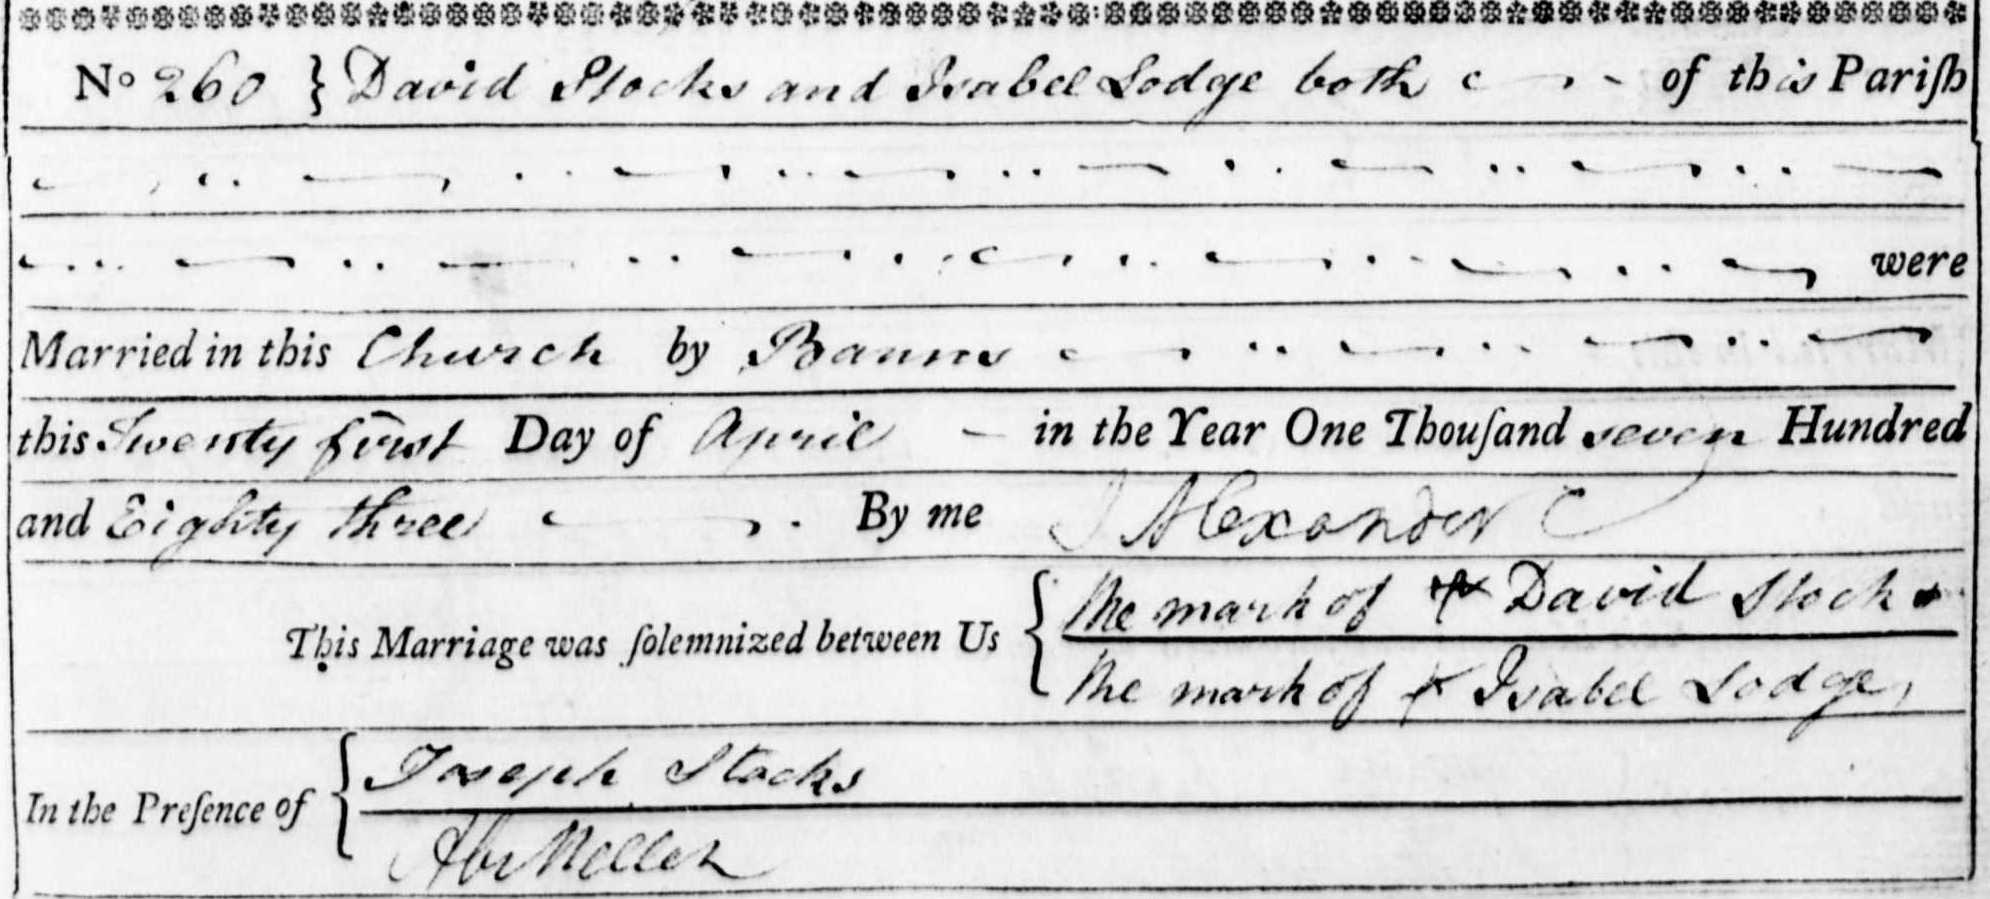 No 260 } David Stocks and Isabel Lodge both of this Pariſh
were
Married in this Church by Banns
this Twenty first Day of April in the Year One Thouſand seven Hundred
and Eighty three By me J Alexander C
This Marriage was ſolemnized between Us { The mark of + David Stocks
The mark of + Isabel Lodge,
In the Preſence of { Joseph Stocks
Abr Meller